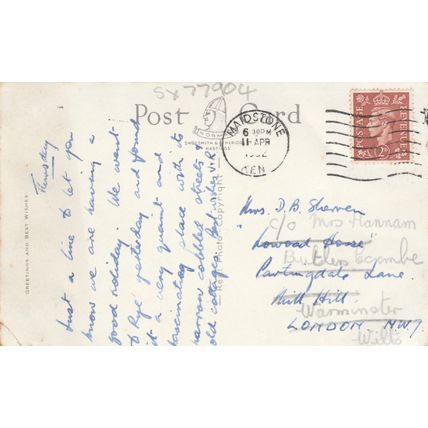 SX77904
Post Card
NORMAN
SHOESMITH & ETHERIDGE
HASTINGS
Real Photo Copyright
GREETINGS AND BEST WISHES
MAIDSTONE
6 30PM
11 APR
1952
KENT
POSTAGE REVENUE
2D
Thursday
Just a line to let you
know we are having a
good holiday. We went
to Rye yesterday and found
it a very quaint and
fascinating place with its
narrow cobbled streets
old cottages. Best wishes V.R.
Mrs. D. B. Sherren
c/o Mrs Hannam
Lowood House
Butlers Coombe
Partingdale Lane
Mill Hill
Warminster
LONDON. N.W.7
Wilts